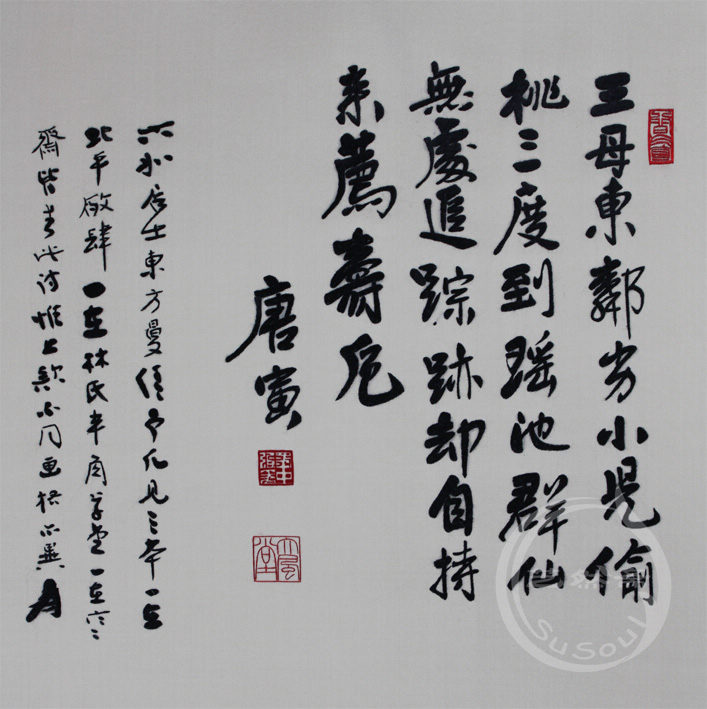 王母東鄰劣小兒偷
桃三度到瑤池群仙
無處追踪跡却自持
來薦壽卮
唐寅
大風堂
六如居士東方曼倩予凡見三本一在
北平敝肆一在林氏半角草堂一在
齋皆書此詩惟上款不同画格亦異爰
SuSoul